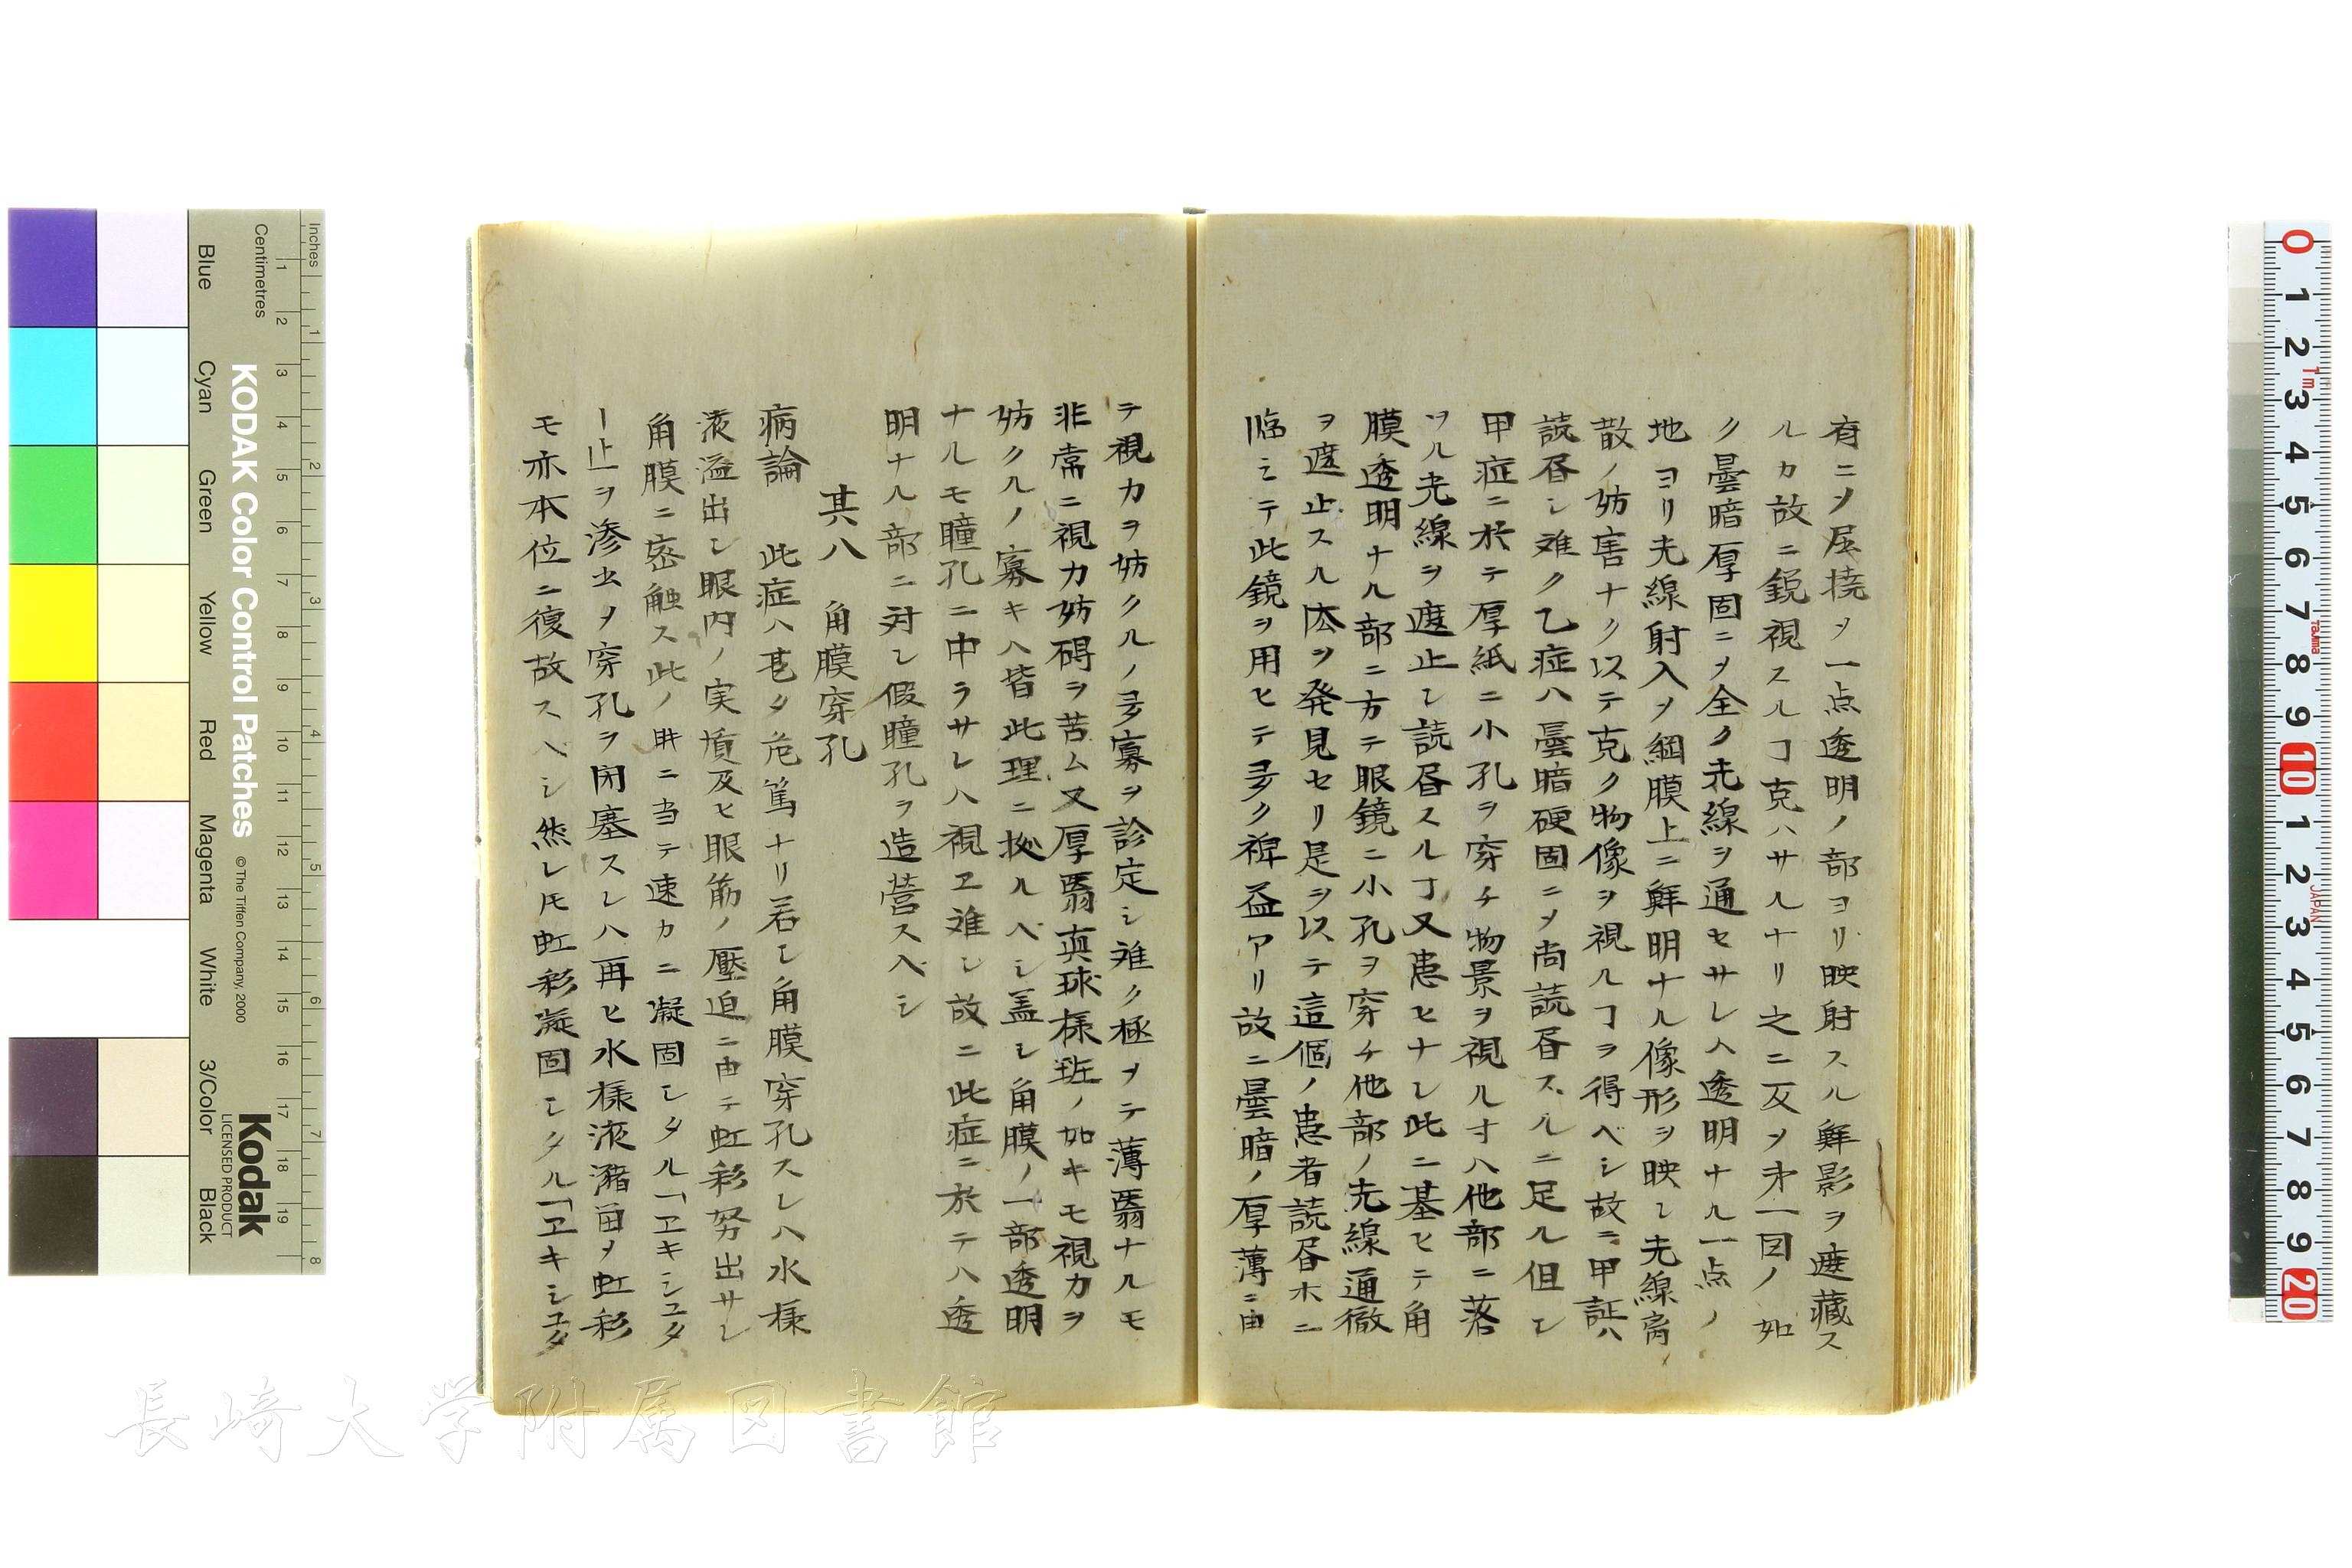 有ニヲ屈撓ヲ一点透明ノ部ヨリ映射スル鮮影ヲ遮蔵ス
ルカ故ニ鋭視スルヿ克ハサルナリ之ニ反ヲ才一図ノ如
ク曇暗厚固ニヲ全ク光線ヲ通セサレハ透明ナル一点ノ
地ヨリ光線射入ヲ網膜上ニ鮮明ナル像形ヲ映シ光線斎
散ノ妨害ナク以テ克ク物像ヲ視ルヿヲ得ベシ故ニ甲証ハ
読昏シ难ク乙症ハ曇暗硬固ニヲ尚読昏スルニ足ル但シ
甲症ニ於テ厚紙ニ小孔ヲ穿チ物景ヲ視ル寸ハ他部ニ落
ツル光線ヲ遮止シ読昏スルヿ又患ヒナシ此ニ基ヒテ角
膜透明ナル部ニ方テ眼鏡ニ小孔ヲ穿チ他部ノ光線通徹
ヲ遮止スル㳒ヲ発見セリ是ヲ以テ這個ノ患者読昏ホニ
臨ミテ此鏡ヲ用ヒテ多ク裨益アリ故ニ曇暗ノ厚薄ニ由
テ視力ヲ妨クルノ多寡ヲ診定シ难ク極ヲテ薄翳ナルモ
非常ニ視力妨碍ヲ苦ム又厚翳真球様斑ノ如キモ視力ヲ
妨クルノ寡キハ皆此理ニ拠ルベシ盖シ角膜ノ一部透明
ナルモ瞳孔ニ中ラサレハ視ヱ难シ故ニ此症ニ於テハ透
明ナル部ニ対シ假瞳孔ヲ造営スベシ
其八 角膜穿孔
病論 此症ハ甚タ危篤ナリ若シ角膜穿孔スレハ水様
液溢出シ眼内ノ実質及ヒ眼筋ノ壓迫ニ由テ虹彩努出サレ
角膜ニ密触ス此ノ時ニ当テ速カニ凝固シタル「ヱキシユタ
ー止ヲ滲出ヲ穿孔ヲ閉塞スレハ再ヒ水様液瀦畄ヲ虹彩
モ亦本位ニ復故スヘシ然レ𪜈虹彩凝固シタル「ヱキシユタ
長崎大学附属図書館
KODAK Color Control Patches
© The Tiffen Company, 2000
Kodak
LICENSED PRODUCT
Inches
Centimetres
Blue
Cyan
Green
Yellow
Red
Magenta
White
3/Color
Black
0 1 2 3 4 5 6 7 8 9 10 1 2 3 4 5 6 7 8 9 20
JAPAN